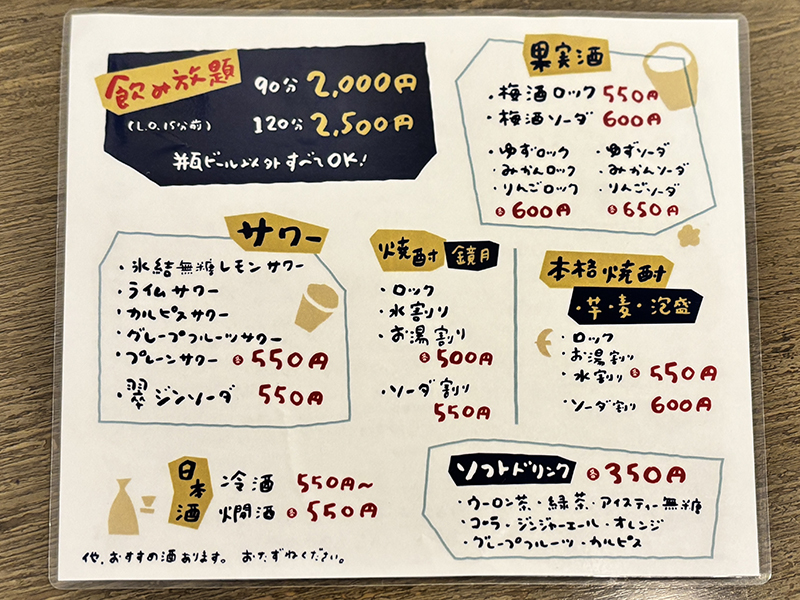 飲み放題
90分 2,000円
(L.O.15分前) 120分 2,500円
瓶ビール以外すべてOK!
果実酒
・梅酒ロック 550円
・梅酒ソーダ 600円
・ゆずロック ・ゆずソーダ
・みかんロック ・みかんソーダ
・りんごロック ・りんごソーダ
各600円 各650円
サワー
・氷結無糖レモンサワー
・ライムサワー
・カルピスサワー
・グレープフルーツサワー
・プレーンサワー 各550円
・翠ジンソーダ 550円
焼酎 鏡月
・ロック
・水割り
・お湯割り
各500円
・ソーダ割り
550円
本格焼酎
・芋・麦・泡盛
・ロック
・お湯割り
・水割り 各550円
・ソーダ割り 600円
日本酒
冷酒 550円~
燗酒 各550円
ソフトドリンク 各350円
・ウーロン茶・緑茶・アイスティー無糖
・コーラ・ジンジャーエール・オレンジ
・グレープフルーツ・カルピス
他、おすすめ酒あります。 おたずねください。